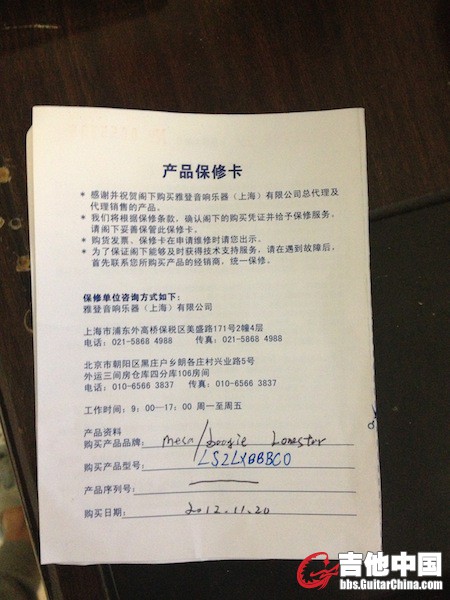 产品保修卡
* 感谢并祝贺阁下购买雅登音响乐器（上海）有限公司总代理及
代理销售的产品。
* 我们将根据保修条款，确认阁下的购买凭证并给予保修服务，
请阁下妥善保管此保修卡。
* 购货发票，保修卡在申请维修时请您出示。
* 为了保证阁下能够及时获得技术支持服务，请在遇到故障后，
首先联系您所购买产品的经销商，统一保修。
保修单位咨询方式如下：
雅登音响乐器（上海）有限公司
上海市浦东外高桥保税区美盛路171号2幢4层
电话：021-5868 4988 传真：021-5868 4988
北京市朝阳区黑庄户乡朗各庄村兴业路5号
外运三间房仓库四分库106房间
电话：010-6566 3837 传真：010-6566 3837
工作时间：9：00—17：00 周一至周五
产品资料
购买产品品牌：mesa/boogie Lonestar
购买产品型号：LS2LXBBBCO
产品序列号：
购买日期：2012.11.20
吉他中国
bbs.GuitarChina.com